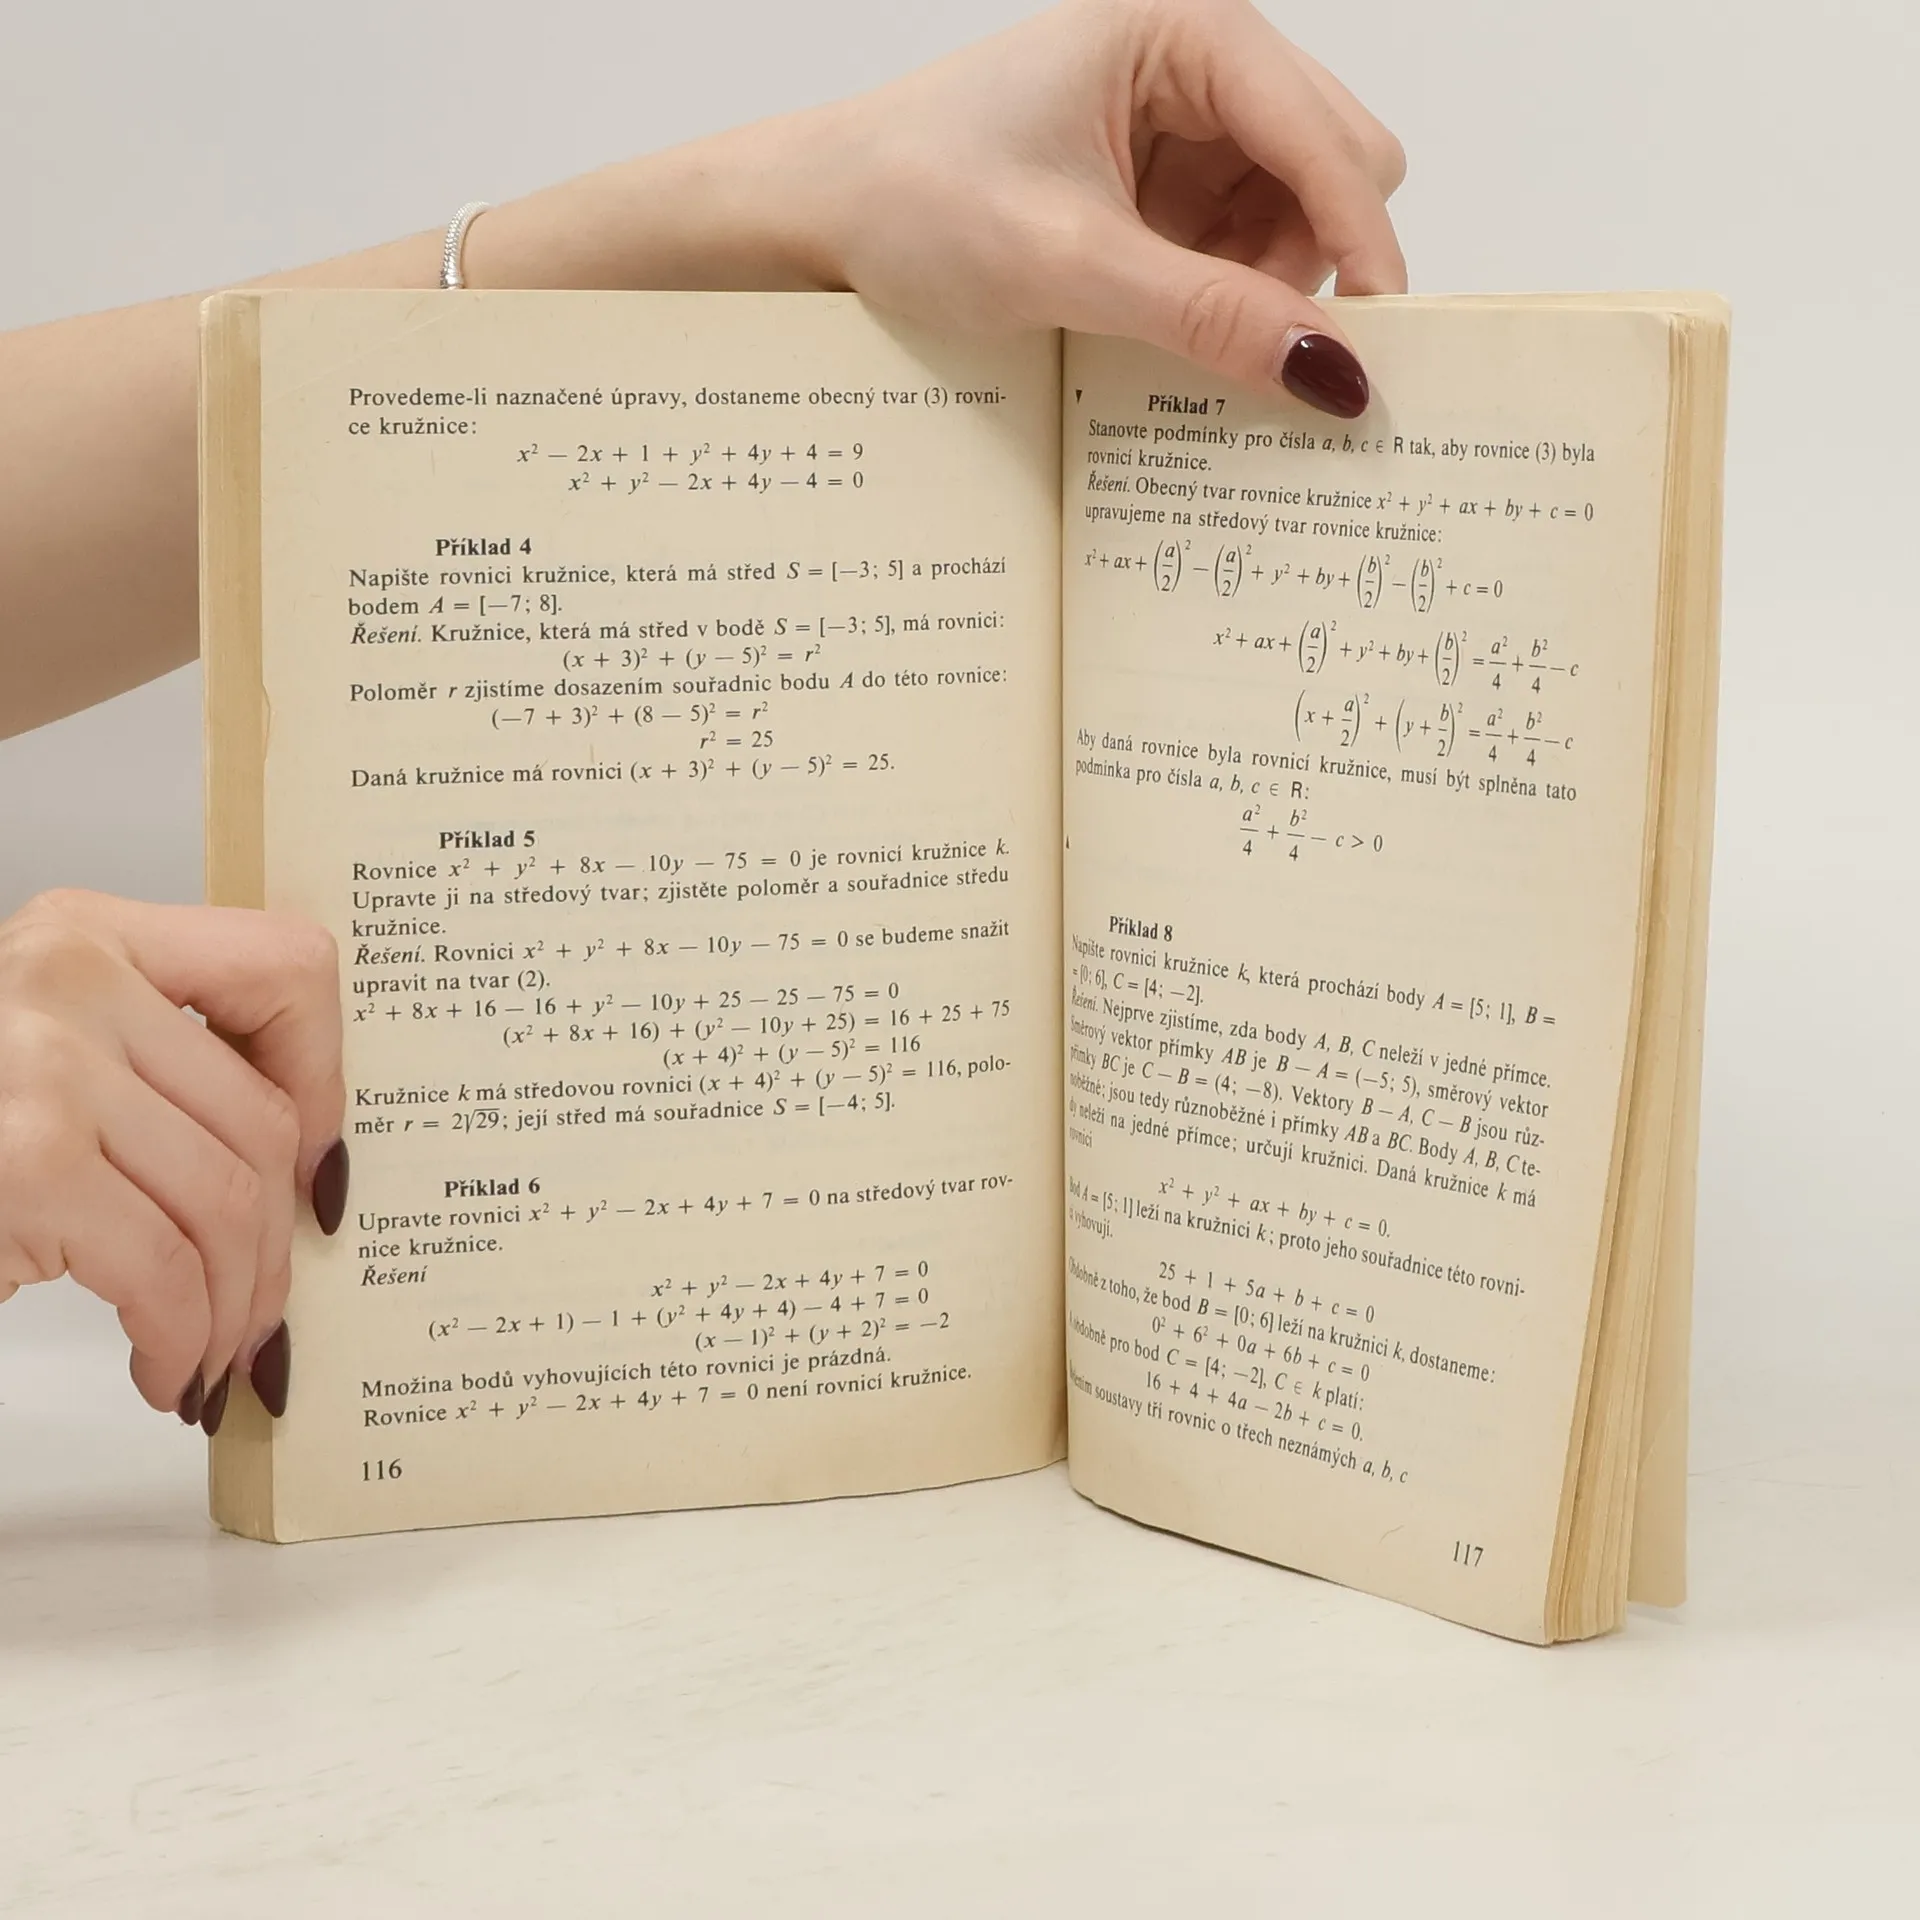 Provedeme-li naznačené úpravy, dostaneme obecný tvar (3) rovni-
ce kružnice:
x² — 2x + 1 + y² + 4y + 4 = 9
x² + y² — 2x + 4y — 4 = 0
Příklad 4
Napište rovnici kružnice, která má střed S = [—3; 5] a prochází
bodem A = [—7; 8].
Řešení. Kružnice, která má střed v bodě S = [—3; 5], má rovnici:
(x + 3)² + (y — 5)² = r²
Poloměr r zjistíme dosazením souřadnic bodu A do této rovnice:
(—7 + 3)² + (8 — 5)² = r²
r² = 25
Daná kružnice má rovnici (x + 3)² + (y — 5)² = 25.
Příklad 5
Rovnice x² + y² + 8x — 10y — 75 = 0 je rovnicí kružnice k.
Upravte ji na středový tvar; zjistěte poloměr a souřadnice středu
kružnice.
Řešení. Rovnici x² + y² + 8x — 10y — 75 = 0 se budeme snažit
upravit na tvar (2).
x² + 8x + 16 — 16 + y² — 10y + 25 — 25 — 75 = 0
(x² + 8x + 16) + (y² — 10y + 25) = 16 + 25 + 75
(x + 4)² + (y — 5)² = 116
Kružnice k má středovou rovnici (x + 4)² + (y — 5)² = 116, polo-
měr r = 2√29; její střed má souřadnice S = [—4; 5].
Příklad 6
Upravte rovnici x² + y² — 2x + 4y + 7 = 0 na středový tvar rov-
nice kružnice.
Řešení
x² + y² — 2x + 4y + 7 = 0
(x² — 2x + 1) — 1 + (y² + 4y + 4) — 4 + 7 = 0
(x — 1)² + (y + 2)² = —2
Množina bodů vyhovujících této rovnici je prázdná.
Rovnice x² + y² — 2x + 4y + 7 = 0 není rovnicí kružnice.
116
Příklad 7
Stanovte podmínky pro čísla a, b, c ∈ R tak, aby rovnice (3) byla
rovnicí kružnice.
Řešení. Obecný tvar rovnice kružnice x² + y² + ax + by + c = 0
upravujeme na středový tvar rovnice kružnice:
x² + ax + (a/2)² — (a/2)² + y² + by + (b/2)² — (b/2)² + c = 0
x² + ax + (a/2)² + y² + by + (b/2)² = a²/4 + b²/4 — c
(x + a/2)² + (y + b/2)² = a²/4 + b²/4 — c
Aby daná rovnice byla rovnicí kružnice, musí být splněna tato
podmínka pro čísla a, b, c ∈ R:
a²/4 + b²/4 — c > 0
Příklad 8
Napište rovnici kružnice k, která prochází body A = [5; 1], B =
= [0; 6], C = [4; —2].
Řešení. Nejprve zjistíme, zda body A, B, C neleží v jedné přímce.
Směrový vektor přímky AB je B — A = (—5; 5), směrový vektor
přímky BC je C — B = (4; —8). Vektory B — A, C — B jsou růz-
noběžné; jsou tedy různoběžné i přímky AB a BC. Body A, B, C te-
dy neleží na jedné přímce; určují kružnici. Daná kružnice k má
rovnici
x² + y² + ax + by + c = 0.
Bod A = [5; 1] leží na kružnici k; proto jeho souřadnice této rovni-
ci vyhovují.
25 + 1 + 5a + b + c = 0
Obdobně z toho, že bod B = [0; 6] leží na kružnici k, dostaneme:
0² + 6² + 0a + 6b + c = 0
A obdobně pro bod C = [4; —2], C ∈ k platí:
16 + 4 + 4a — 2b + c = 0.
Řešením soustavy tří rovnic o třech neznámých a, b, c
117